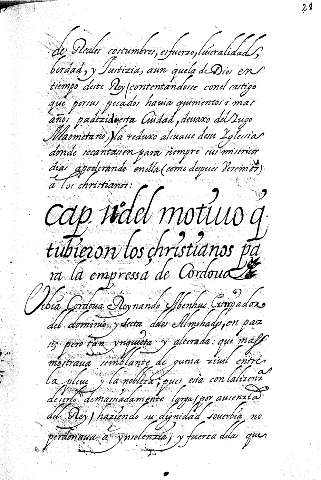 21
de Reales costumbres, esfuerzo, liberalidad,
berdad, y Justizia, aun que la de Dios en
tiempo deste Rey (contentandose con el castigo
que por sus pecados havia quinientos i mas
años padezido esta Ciudad, devaxo del Yugo
Maometano) la reduxo al suave de su Yglesia
donde se cantasen para siempre sus misericor
dias apoderando en ella (como despues veremos)
a los christianos:
Cap II del motiuo q̃
tubieron los christianos pa
ra la empressa de Cordoua
Cordova Reynando
del dominio, y secta de los Almohades, en paz
pero tan ynquieta y alterada: que mas
mostraua semblante de guerra ciuil entre
la pleve y la nobleza; pues esta con la lizenzia
desorde demasiadamente larga (por ausenzia
del Rey) haziendo su dignidad soverbia, no
perdonaua a ynsolenzia, y fuerza de las que